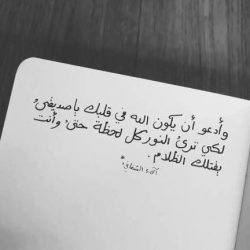 وأدعو أن يكون الله في قلبك ياصديقي
لكي ترى النور كل لحظة حتى وأنت
بفتلك الظلام.